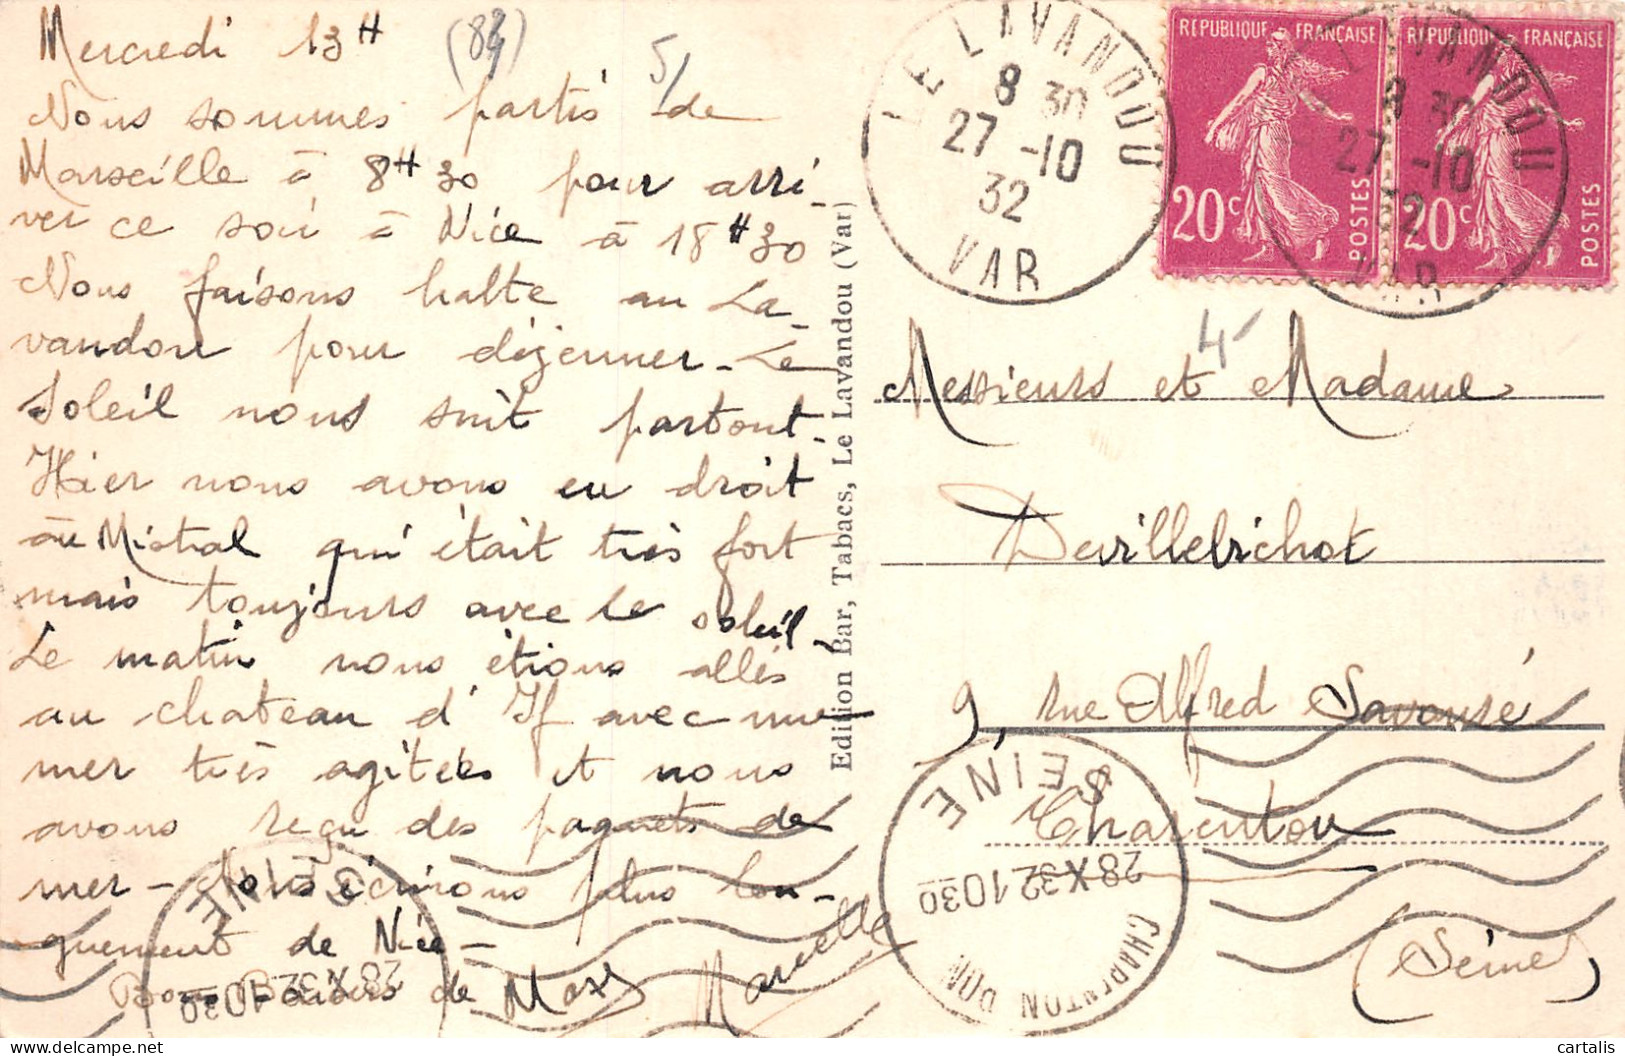 Mercredi 13H
(83)
5/
Nous sommes partis de
Marseille à 8H30 pour arri-
ver ce soir à Nice à 18H30
Nous faisons halte au La-
vandou pour déjeuner - Le
Soleil nous suit partout -
Hier nous avons eu droit
au Mistral qui était très fort
mais toujours avec le soleil -
Le matin nous étions allés
au chateau d'If avec une
mer très agitées et nous
avons reçu des paquets de
mer - Nous écrirons plus lon-
guement de Nice -
Bons Baisers de Max Marcelle
Edition Bar, Tabacs, Le Lavandou (Var)
LE LAVANDOU
8 30
27 -10
32
VAR
REPUBLIQUE FRANÇAISE
20c POSTES
REPUBLIQUE FRANÇAISE
20c POSTES
LAVANDOU
8 30
27 -10
32
VAR
4-
Messieurs et Madame
Devillebichot
9, rue Alfred Savouré
Charenton
(Seine)
SEINE
28 X 32 1030
CHARENTON PON
SEINE
28 X 32 1030
cartalis